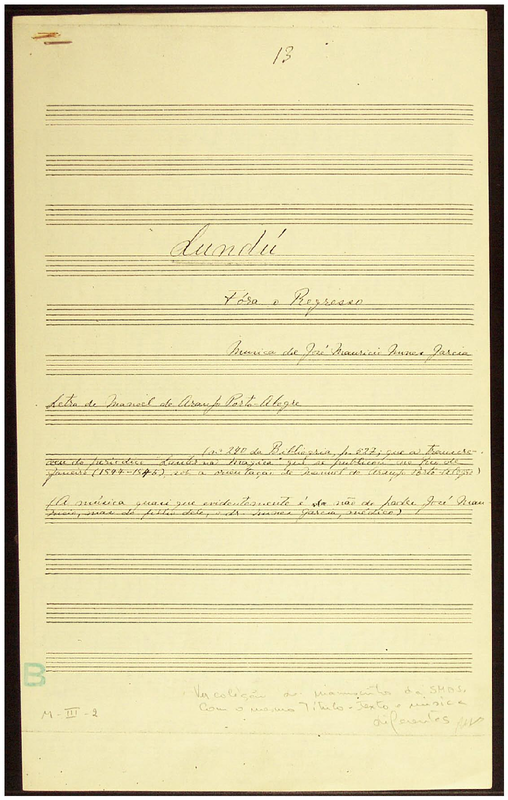 13
Lundú
Fóra o Regresso
Musica de José Mauricio Nunes Garcia
Letra de Manoel de Araujo Porto-Alegre
(nº 290 da Bibliogria, p. 627, que a transcre-
veu do periodico "Lanterna Magica" que se publicou no Rio de
Janeiro (1844-1845) sob a orientação de Manuel de Araujo Porto-Alegre)
(A música quasi que evidentemente é não do padre José Mau
ricio, mas do filho dele, o dr. Nunes Garcia, médico)
B
Na coleção de manuscritos da
M-III-2
com o mesmo título - texto e música
diferentes